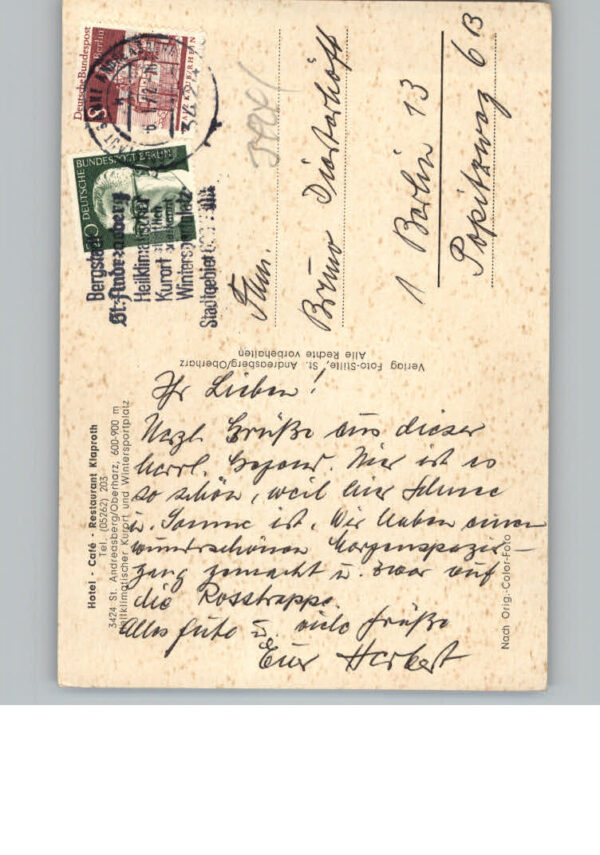 Hotel - Café - Restaurant Klaproth
Tel. (05262) 203
3424 St. Andreasberg/Oberharz, 600-900 m
heilklimatischer Kurort und Wintersportplatz
Ihr Lieben!
Herzl. Grüße aus dieser
herrl. Gegend. Hier ist es
so schön, weil hier Schnee
u. Sonne ist. Wir haben einen
wunderschönen Morgenspazier-
gang gemacht u. zwar auf
die Rosstrappe.
Alles Gute u. viele Grüße
Euer Herbert
Nach Orig.-Color-Foto
Verlag Foto-Stille, St. Andreasberg/Oberharz
Alle Rechte vorbehalten
Deutsche Bundespost
Berlin
DEUTSCHE BUNDESPOST BERLIN
3424
Bergstadt
St. Andreasberg
Heilklimatischer
Kurort
Wintersportplatz
Fam.
Bruno Diosterhöft
1 Berlin 13
Popitzweg 6 B